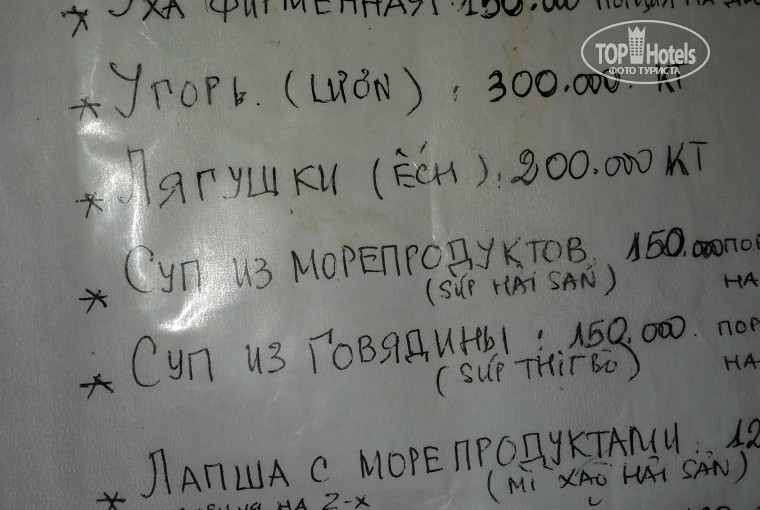 * УХА ФИРМЕННАЯ: 150.000 ПОРЦИЯ НА
TOP Hotels
ФОТО ТУРИСТА
* УГОРЬ. (LƯƠN) : 300.000. КТ
* ЛЯГУШКИ (ẾCH) : 200.000 КТ
* СУП ИЗ МОРЕПРОДУКТОВ. 150.000 ПОР
(SÚP HẢI SẢN) НА
* СУП ИЗ ГОВЯДИНЫ : 150.000. ПОР
(SÚP THỊT BÒ) НА
* ЛАПША С МОРЕПРОДУКТАМИ : 12
(MÌ XÀO HẢI SẢN)
НА 2-Х